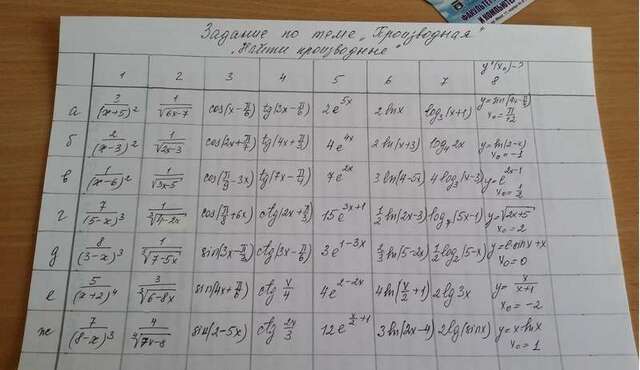 ФАКУЛЬТЕТ
Задание по теме „Производная"
„Найти производные"
1 2 3 4 5 6 7 y'(x₀)-?
8
а 3/(x+5)² 1/√(6x-7) cos(x-π/6) tg(3x-π/6) 2e^(5x) 2lnx log₃(x+1) y=sin(4x-π/3) x₀=π/12
б 2/(x-3)² 1/√(2x-3) tg(4x+π/3) 4e^(4x) 2ln(x+3) log₄2x y=ln(2-x) x₀=-1
в 1/(x-6)² 1/√(3x-5) tg(7x-π/4) 7e^(2x) 3ln(4-5x) 4log₃(x-3) y=e^(2x-1) x₀=1/2
г 7/(5-x)³ cos(π/8+6x) ctg(2x+π/3) 15e^(3x+1) 1/2 ln(2x-3) (5x-1) y=√(2x+5) x₀=2
д 8/(3-x)³ sin(3x-π/2) ctg(3x-π/6) 3e^(1-3x) 1/3 ln(5-2x) 1/2 log₂(5-x) x₀=0
е 5/(x+2)⁴ sin(4x+π/6) ctg x/4 4e^(2-2x) 4ln(x/2+1) 2lg3x y=x/(x+1) x₀=-2
ж 7/(8-x)³ sin(2-5x) ctg 2x/3 12e^(x/2+1) 3ln(2x-4) 2lg(sinx) y=x·lnx x₀=1